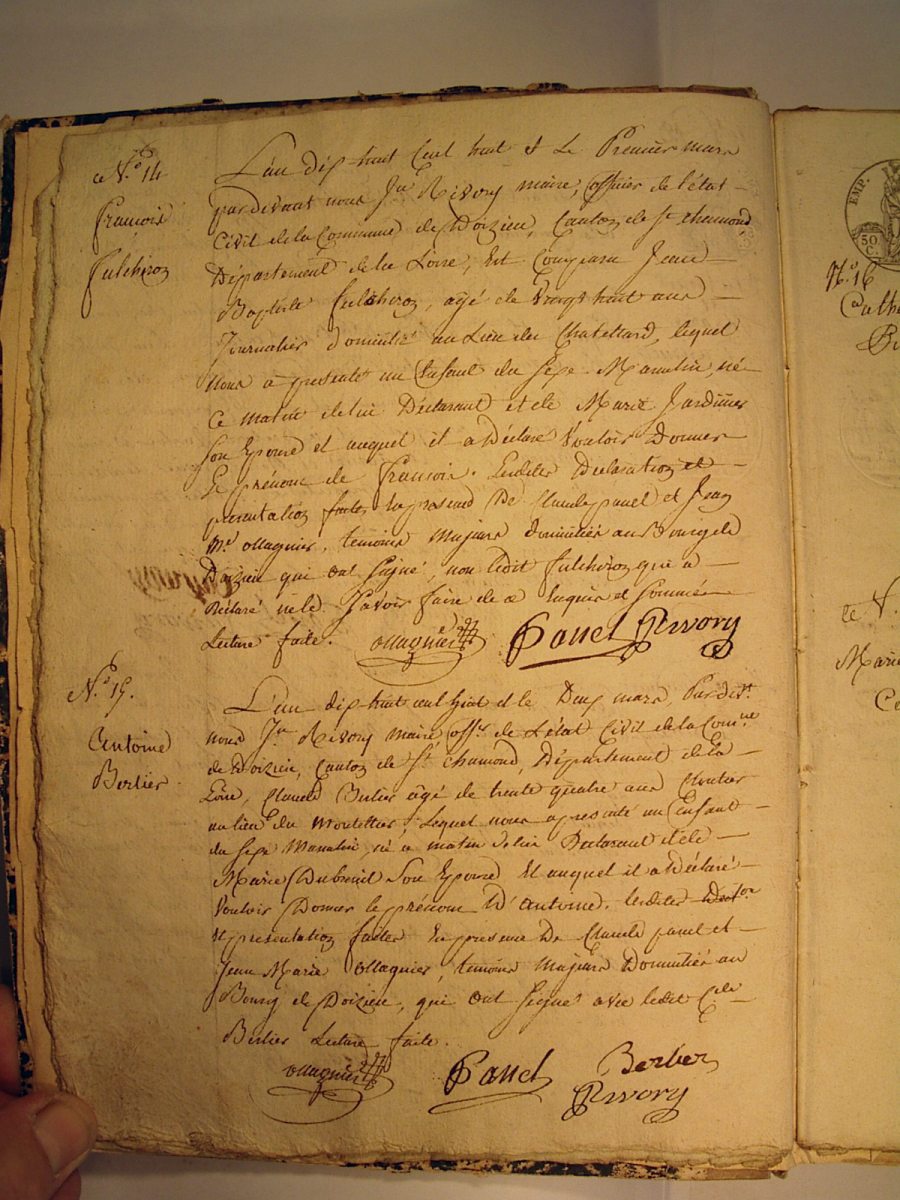 N.º 14
françois
fulchiron
L'an dix huit Cent huit et Le Premier mars
pardevant nous Jn Rivory maire, officier de l'état
Civil de la Commune de Doizieu, Canton de St chamond
Département de la Loire, Est Comparu Jean
Baptiste fulchiron, agé de Vingt huit ans
Journalier domicilié au Lieu du Chatellard, lequel
nous a presenté un Enfant du sexe Masculin, né
Ce matin de lui Déclarant et de Marie Jardinier
son Epouse et auquel il a Déclaré Vouloir Donner
Le prénom de françois. Lesdites Declaration et
presentation faites En presence De Claude panel et Jean
Mie ollagnier, temoins Majeurs domiciliés au Bourg de
Doizieu qui ont signé, non ledit fulchiron qui a
Déclaré ne le Savoir faire de ce Enquis et Sommé
Lecture faite. ollagnier Panel Rivory
N.º 15.
Antoine
Berlier
L'an dix huit cent huit et le Deux mars, Pardvt.
nous Jn Rivory Maire offer de L'état Civil de la Comne
de Doizieu, Canton de St chamond, Département de la
Loire, Claude Berlier agé de trente quatre ans Cloutier
au lieu du Moulettier, Lequel nous a presenté un Enfant
du sexe Masculin, né ce matin de lui Déclarant et de
Marie Dubreuil Son Epouse Et auquel il a Déclaré
Vouloir Donner le prénom D'antoine. Lesdites Don
et presentation faites En presence De Claude panel et
Jean Marie Ollagnier, temoins Majeurs Domiciliés au
Bourg de Doizieu, qui ont Signé avec ledit Cde
Berlier Lecture faite.
ollagnier Panel Berlier
Rivory
EMP.
50
C.
N.º 16
Cathe
le
Marie